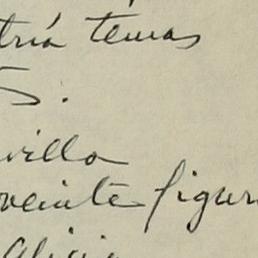 tría temas
S.
villa
veinte figur
Alici